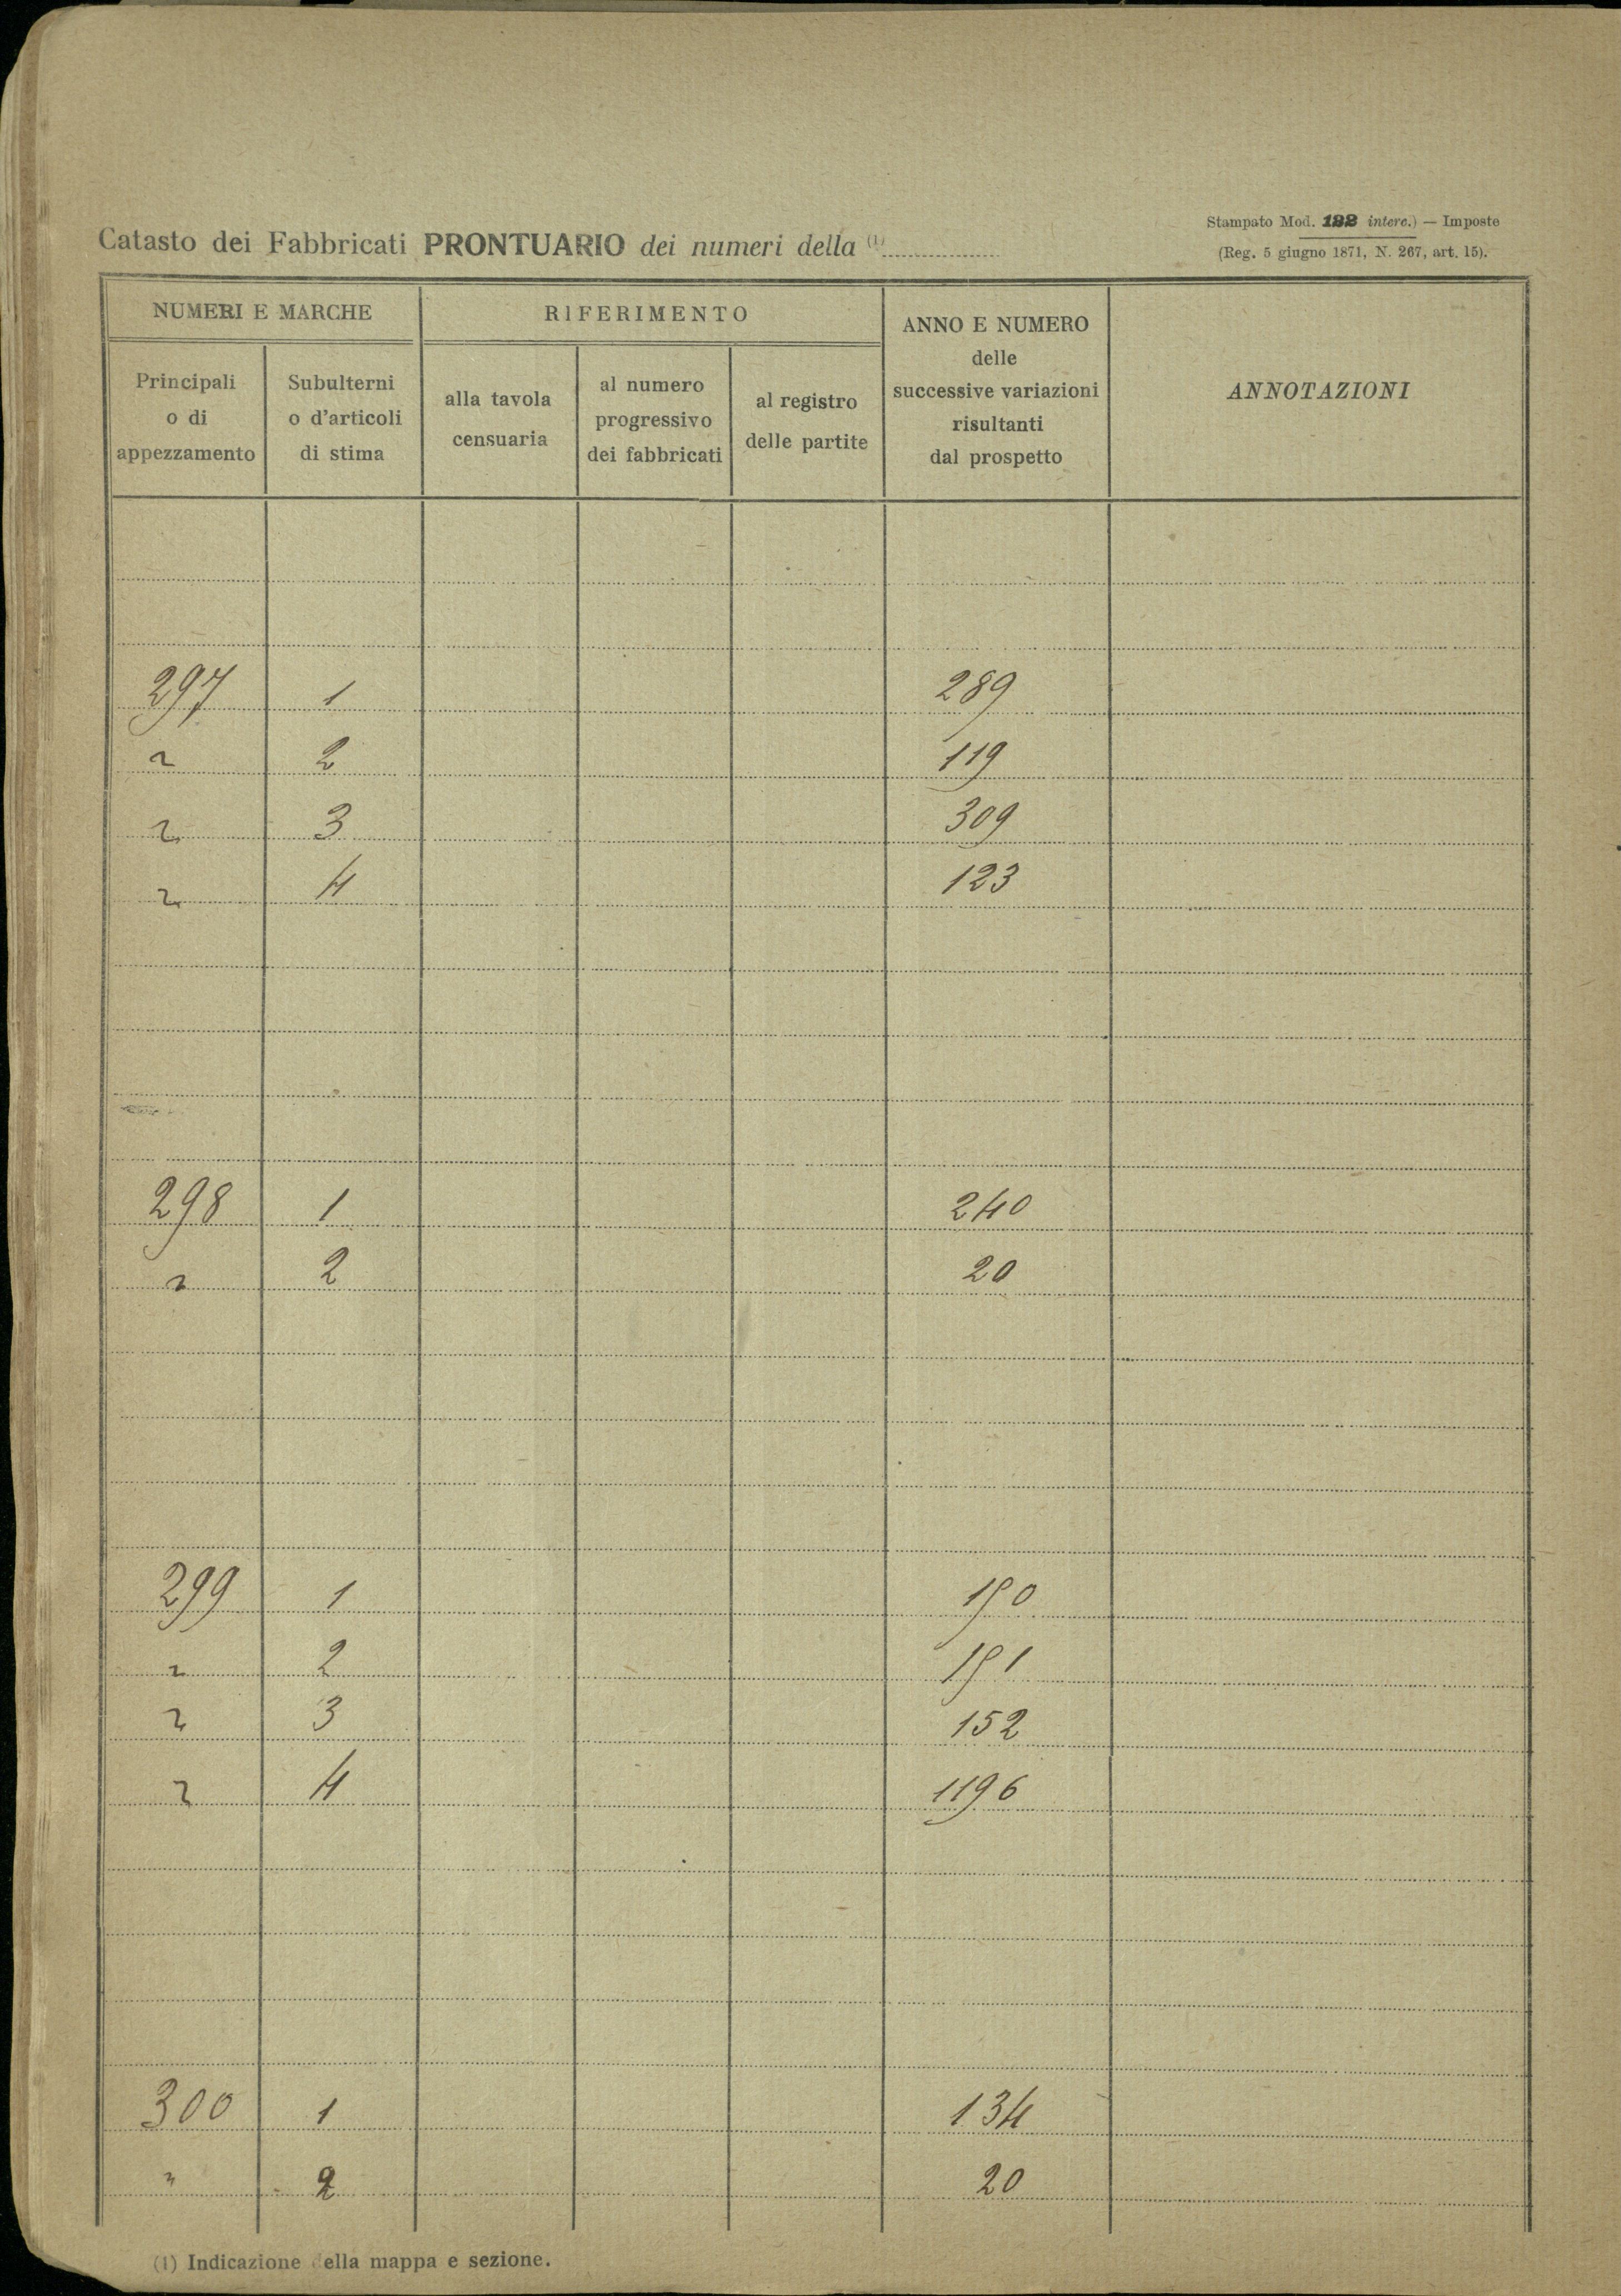 Stampato Mod. 122 interc.) — Imposte
(Reg. 5 giugno 1871, N. 267, art. 15).
Catasto dei Fabbricati PRONTUARIO dei numeri della (1)
NUMERI E MARCHE RIFERIMENTO ANNO E NUMERO delle successive variazioni risultanti dal prospetto ANNOTAZIONI
Principali o di appezzamento Subulterni o d'articoli di stima alla tavola censuaria al numero progressivo dei fabbricati al registro delle partite
297 1 289
" 2 119
" 3 309
" 4 123
298 1 240
" 2 20
299 1 150
" 2 151
" 3 152
" 4 1196
300 1 134
" 2 20
(1) Indicazione della mappa e sezione.